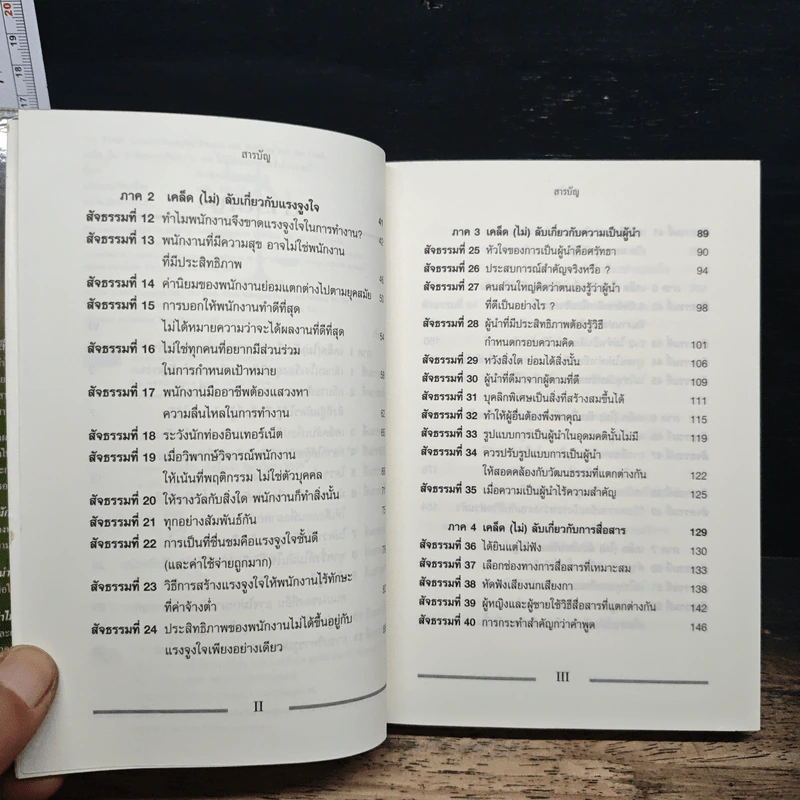 สารบัญ
ภาค 2 เคล็ด (ไม่) ลับเกี่ยวกับแรงจูงใจ 41
สัจธรรมที่ 12 ทำไมพนักงานจึงขาดแรงจูงใจในการทำงาน? 42
สัจธรรมที่ 13 พนักงานที่มีความสุข อาจไม่ใช่พนักงาน
ที่มีประสิทธิภาพ 46
สัจธรรมที่ 14 ค่านิยมของพนักงานย่อมแตกต่างไปตามยุคสมัย 50
สัจธรรมที่ 15 การบอกให้พนักงานทำดีที่สุด
ไม่ได้หมายความว่าจะได้ผลงานที่ดีที่สุด 54
สัจธรรมที่ 16 ไม่ใช่ทุกคนที่อยากมีส่วนร่วม
ในการกำหนดเป้าหมาย
สัจธรรมที่ 17 พนักงานมืออาชีพต้องแสวงหา
ความลื่นไหลในการทำงาน
สัจธรรมที่ 18 ระวังนักท่องอินเทอร์เน็ต
สัจธรรมที่ 19 เมื่อวิพากษ์วิจารณ์พนักงาน
ให้เน้นที่พฤติกรรม ไม่ใช่ตัวบุคคล
สัจธรรมที่ 20 ให้รางวัลกับสิ่งใด พนักงานก็ทำสิ่งนั้น
สัจธรรมที่ 21 ทุกอย่างสัมพันธ์กัน
สัจธรรมที่ 22 การเป็นที่ชื่นชมคือแรงจูงใจชั้นดี
(และค่าใช้จ่ายถูกมาก)
สัจธรรมที่ 23 วิธีการสร้างแรงจูงใจให้พนักงานไร้ทักษะ
ที่ค่าจ้างต่ำ
สัจธรรมที่ 24 ประสิทธิภาพของพนักงานไม่ได้ขึ้นอยู่กับ
แรงจูงใจเพียงอย่างเดียว
II
สารบัญ
ภาค 3 เคล็ด (ไม่) ลับเกี่ยวกับความเป็นผู้นำ 89
สัจธรรมที่ 25 หัวใจของการเป็นผู้นำคือศรัทธา 90
สัจธรรมที่ 26 ประสบการณ์สำคัญจริงหรือ ? 94
สัจธรรมที่ 27 คนส่วนใหญ่คิดว่าตนเองรู้ว่าผู้นำ
ที่ดีเป็นอย่างไร ? 98
สัจธรรมที่ 28 ผู้นำที่มีประสิทธิภาพต้องรู้วิธี
กำหนดกรอบความคิด 101
สัจธรรมที่ 29 หวังสิ่งใด ย่อมได้สิ่งนั้น 106
สัจธรรมที่ 30 ผู้นำที่ดีมาจากผู้ตามที่ดี 109
สัจธรรมที่ 31 บุคลิกพิเศษเป็นสิ่งที่สร้างสมขึ้นได้ 111
สัจธรรมที่ 32 ทำให้ผู้อื่นต้องพึ่งพาคุณ 115
สัจธรรมที่ 33 รูปแบบการเป็นผู้นำในอุดมคตินั้นไม่มี 119
สัจธรรมที่ 34 ควรปรับรูปแบบการเป็นผู้นำ
ให้สอดคล้องกับวัฒนธรรมที่แตกต่างกัน 122
สัจธรรมที่ 35 เมื่อความเป็นผู้นำไร้ความสำคัญ 125
ภาค 4 เคล็ด (ไม่) ลับเกี่ยวกับการสื่อสาร 129
สัจธรรมที่ 36 ได้ยินแต่ไม่ฟัง 130
สัจธรรมที่ 37 เลือกช่องทางการสื่อสารที่เหมาะสม 133
สัจธรรมที่ 38 หัดฟังเสียงนกเสียงกา 138
สัจธรรมที่ 39 ผู้หญิงและผู้ชายใช้วิธีสื่อสารที่แตกต่างกัน 142
สัจธรรมที่ 40 การกระทำสำคัญกว่าคำพูด 146
III